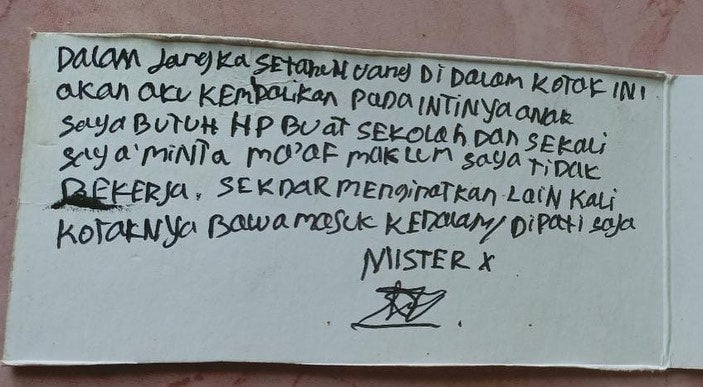 DALAM JANGKA SETAHUN UANG DI DALAM KOTAK INI
AKAN AKU KEMBALIKAN PADA INTINYA ANAK
SAYA BUTUH HP BUAT SEKOLAH DAN SEKALI
SAYA MINTA MA'AF MAKLUM SAYA TIDAK
BEKERJA. SEKDAR MENGINATKAN LAIN KALI
KOTAKNYA BAWA MASUK KEDALAM/DIPATI SAJA
MISTER X